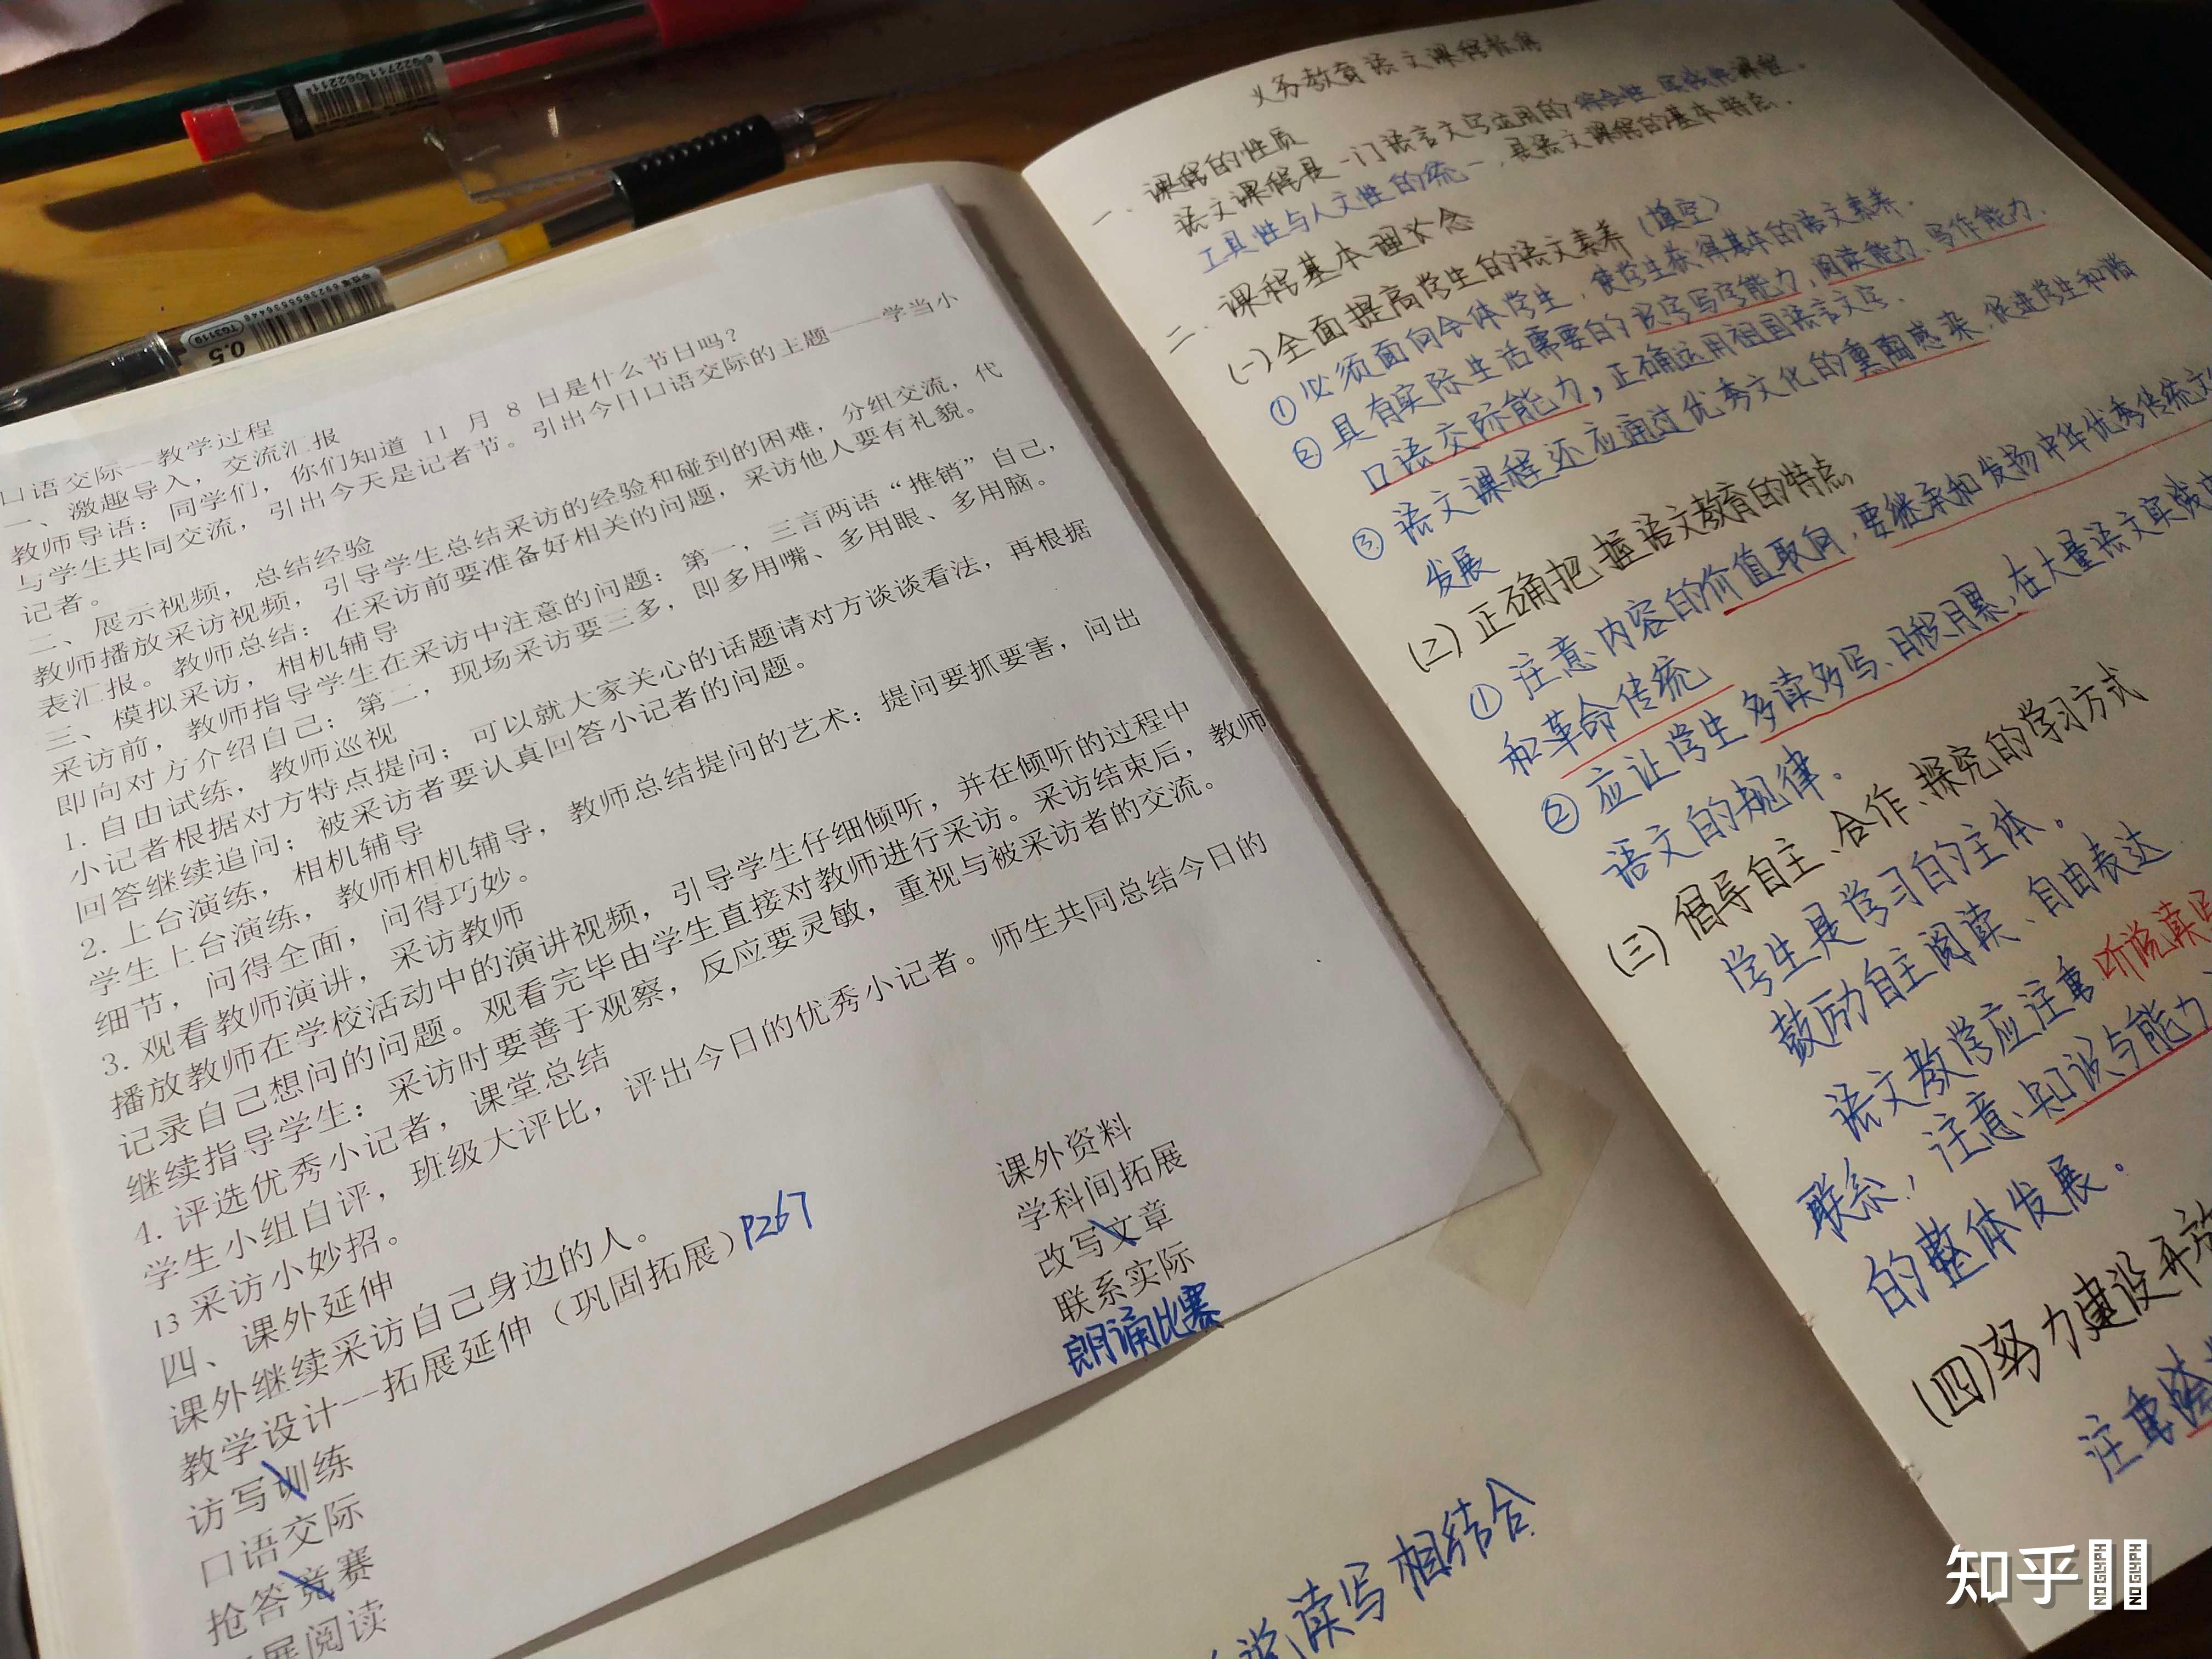 口语交际--教学过程
一、激趣导入，交流汇报
教师导语：同学们，你们知道 11 月 8 日是什么节日吗？
与学生共同交流，引出今天是记者节。引出今日口语交际的主题——学当小
记者。
二、展示视频，总结经验
教师播放采访视频，引导学生总结采访的经验和碰到的困难，分组交流，代
表汇报。教师总结：在采访前要准备好相关的问题，采访他人要有礼貌。
三、模拟采访，相机辅导
采访前，教师指导学生在采访中注意的问题：第一，三言两语“推销”自己，
即向对方介绍自己；第二，现场采访要三多，即多用嘴、多用眼、多用脑。
1. 自由试练，教师巡视
小记者根据对方特点提问；可以就大家关心的话题请对方谈谈看法，再根据
回答继续追问；被采访者要认真回答小记者的问题。
2. 上台演练，相机辅导
学生上台演练，教师相机辅导，教师总结提问的艺术：提问要抓要害，问出
细节，问得全面，问得巧妙。
3. 观看教师演讲，采访教师
播放教师在学校活动中的演讲视频，引导学生仔细倾听，并在倾听的过程中
记录自己想问的问题。观看完毕由学生直接对教师进行采访。采访结束后，教师
继续指导学生：采访时要善于观察，反应要灵敏，重视与被采访者的交流。
4. 评选优秀小记者，课堂总结
学生小组自评，班级大评比，评出今日的优秀小记者。师生共同总结今日的
13 采访小妙招。
四、课外延伸
课外继续采访自己身边的人。
教学设计--拓展延伸（巩固拓展）P267
访写训练
口语交际
抢答竞赛
展阅读
课外资料
学科间拓展
改写文章
联系实际
朗诵比赛
读写相结合
义务教育语文课程标准
一、课程的性质
语文课程是一门语言文字运用的综合性、实践性课程。
工具性与人文性的统一，是语文课程的基本特点。
二、课程基本理念
(一)全面提高学生的语文素养（填空）
①必须面向全体学生，使学生获得基本的语文素养。
②具有实际生活需要的识字写字能力、阅读能力、写作能力、
口语交际能力，正确运用祖国语言文字。
③语文课程还应通过优秀文化的熏陶感染，促进学生和谐
发展
(二)正确把握语文教育的特点
①注意内容的价值取向，要继承和发扬中华优秀传统文
和革命传统
②应让学生多读多写、日积月累，在大量语文实践
语文的规律。
(三)倡导自主、合作、探究的学习方式
学生是学习的主体。
鼓励自主阅读、自由表达
语文教学应注重听说读写
联系，注意知识与能力
的整体发展。
(四)努力建设开放
注重
0.5
TG3119
6922711062211
知乎